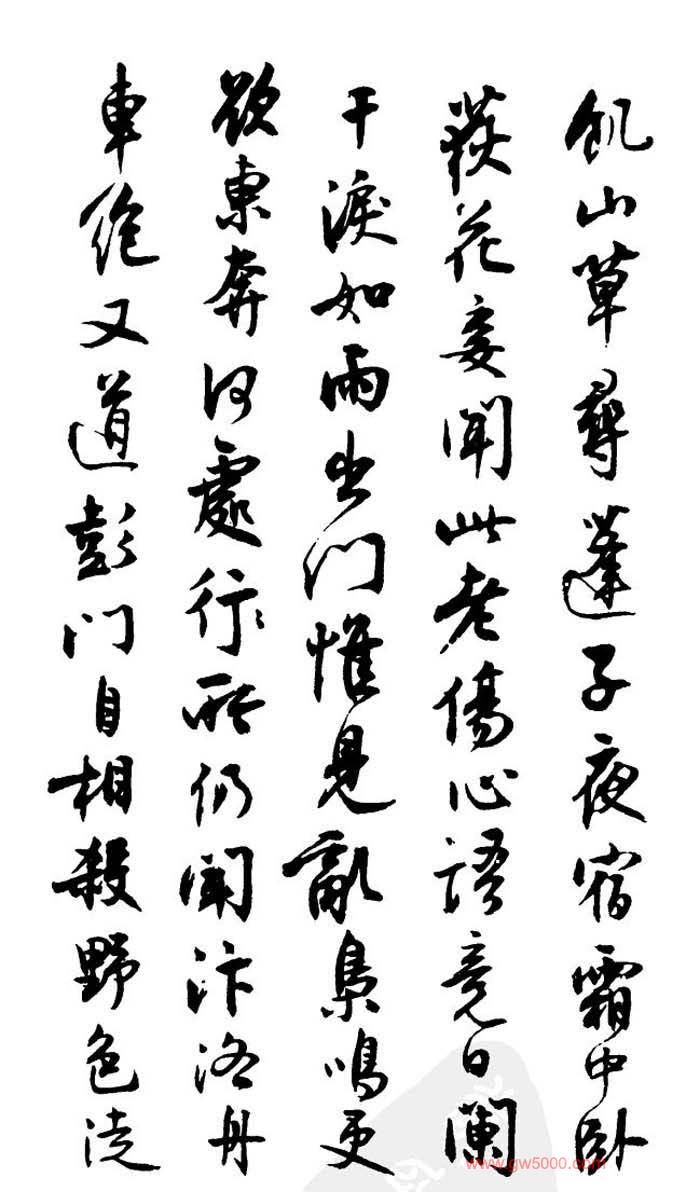 飢山草尋蓬子夜宿霜中臥
荻花妾聞此老傷心語竟日闌
干淚如雨出門惟見亂梟鳴更
欲東奔何處所仍聞汴洛舟
車絶又道彭門自相殺野色徒
www.gw5000.com